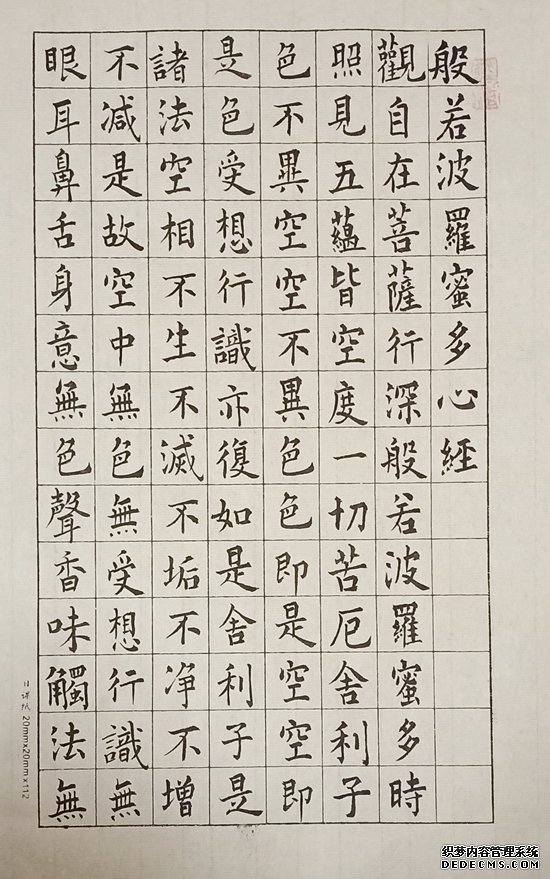 般若波羅蜜多心經
觀自在菩薩行深般若波羅蜜多時
照見五蘊皆空度一切苦厄舍利子
色不異空空不異色色即是空空即
是色受想行識亦復如是舍利子是
諸法空相不生不滅不垢不净不增
不減是故空中無色無受想行識無
眼耳鼻舌身意無色聲香味觸法無
日课纸 20mm×20mm×112
织梦内容管理系统
DEDECMS.COM